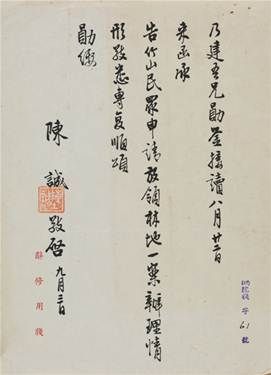 乃建吾兄勛鑒接讀八月廿二日
來函承
告竹山民眾申請放領林地一案辦理情
形敬悉專复順頌
勛綏
陳誠敬啓九月三日
辭修用牋
字61號